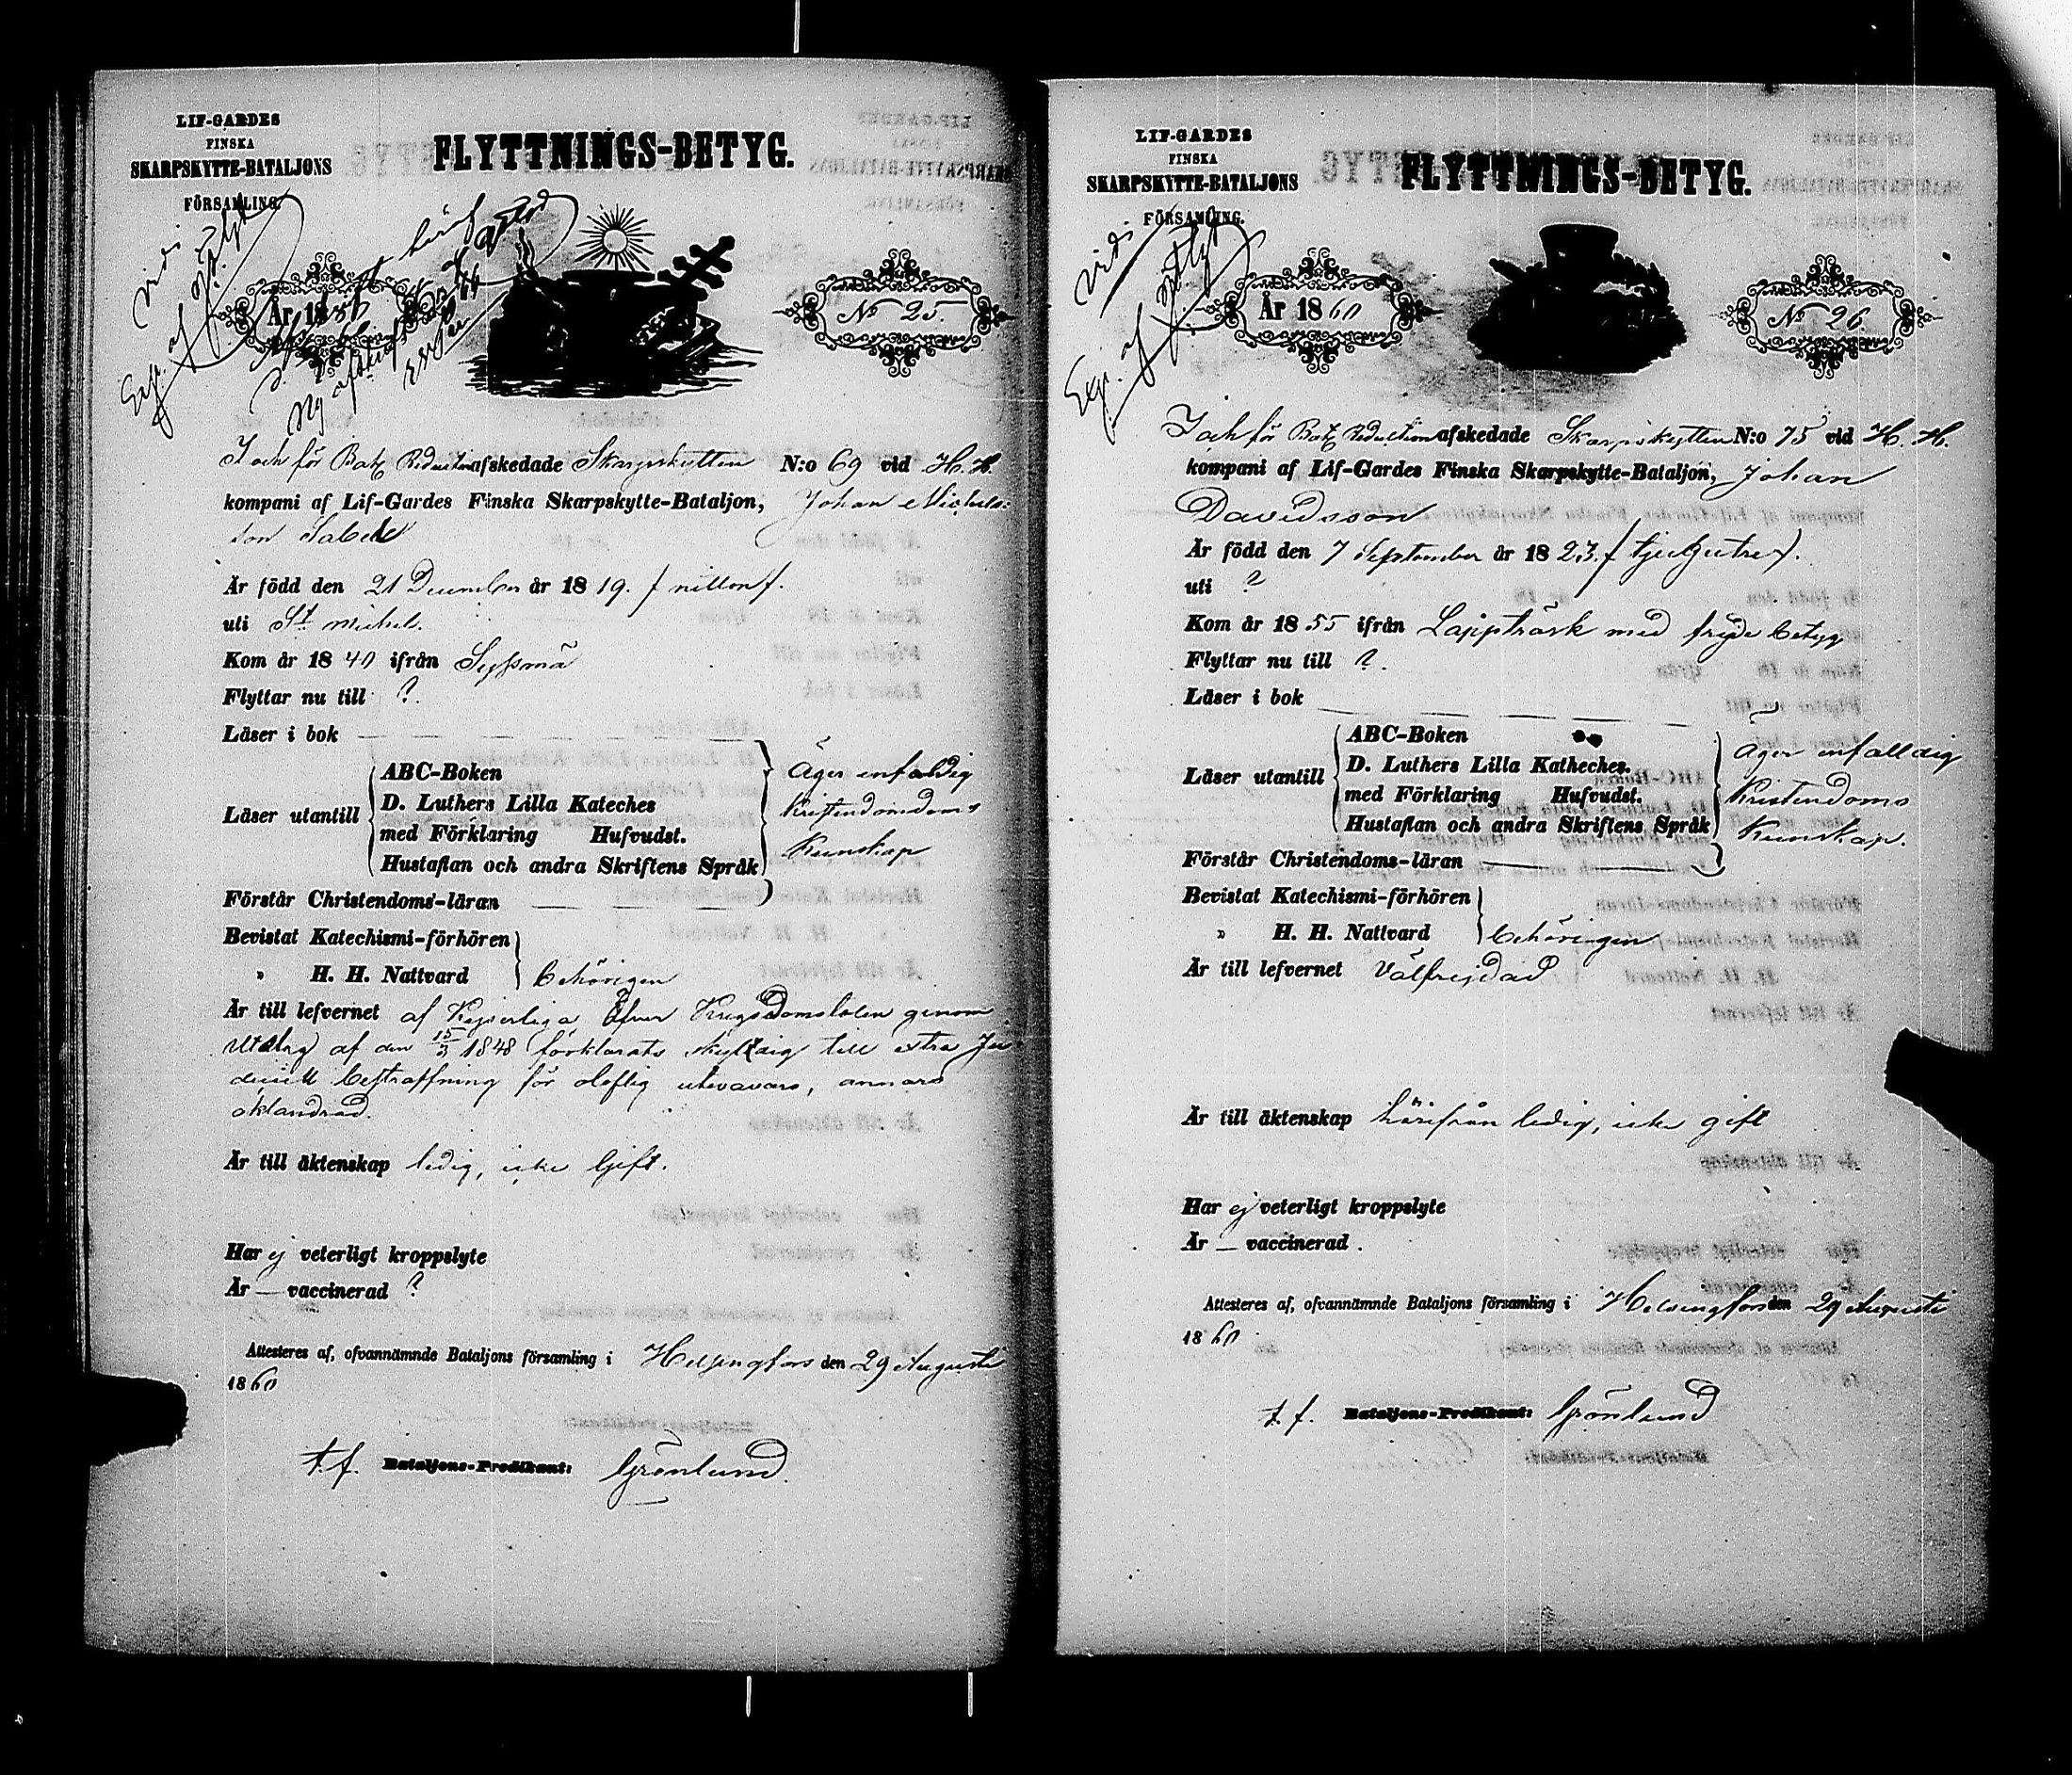 LIF-GARDES
FINSKA
SKARPSKYTTE-BATALJONS
FÖRSAMLING.
FLYTTNINGS-BETYG.
vidi
Exp. af
År 18
No 25.
I och för Bat. Reduction afskedade Skarpskytten N:o 69 vid H. H.
kompani af Lif-Gardes Finska Skarpskytte-Bataljon, Johan Michels-
son
Är född den 21 December år 1819. / nitton /.
uti St Michel.
Kom år 1840 ifrån Syssmä
Flyttar nu till ?.
Läser i bok
Läser utantill
ABC-Boken
D. Luthers Lilla Kateches
med Förklaring Hufvudst.
Hustaflan och andra Skriftens Språk
Äger enfaldig
Kristendomdoms
Kunskap
Förstår Christendoms-läran
Bevistat Katechismi-förhören
" H. H. Nattvard behörigen
Är till lefvernet af Kejserliga Öfver Krigsdomstolen genom
utslag af den 15/3 1848 förklarats skyldig till extra Ju-
diciell bestraffning för oloflig utevaro, annars
oklandrad.
Är till äktenskap ledig, icke Gift.
Har ej veterligt kroppslyte
Är — vaccinerad ?
Attesteres af, ofvannämnde Bataljons församling i Helsingfors den 29 Augusti
1860
t. f. Bataljons-Predikant: Grönlund.
LIF-GARDES
FINSKA
SKARPSKYTTE-BATALJONS
FÖRSAMLING.
FLYTTNINGS-BETYG.
vidi
Exp. af
År 1860
No 26.
I och för Bat. Reduction afskedade Skarpskytten N:o 75 vid H. H.
kompani af Lif-Gardes Finska Skarpskytte-Bataljon, Johan
Davidsson
Är född den 7 September år 1823. / tjugutre /.
uti ?
Kom år 1855 ifrån Lappträsk med frejde betyg
Flyttar nu till ?.
Läser i bok
Läser utantill
ABC-Boken
D. Luthers Lilla Katheches.
med Förklaring Hufvudst.
Hustaflan och andra Skriftens Språk
Äger enfalldig
Kristendoms
Kunskap.
Förstår Christendoms-läran
Bevistat Katechismi-förhören
" H. H. Nattvard behörigen
Är till lefvernet Välfrejdad
Är till äktenskap härifrån ledig, icke gift
Har ej veterligt kroppslyte
Är — vaccinerad.
Attesteres af, ofvannämnde Bataljons församling i Helsingfors den 29 Augusti
1860
t. f. Bataljons-Predikant: Grönlund